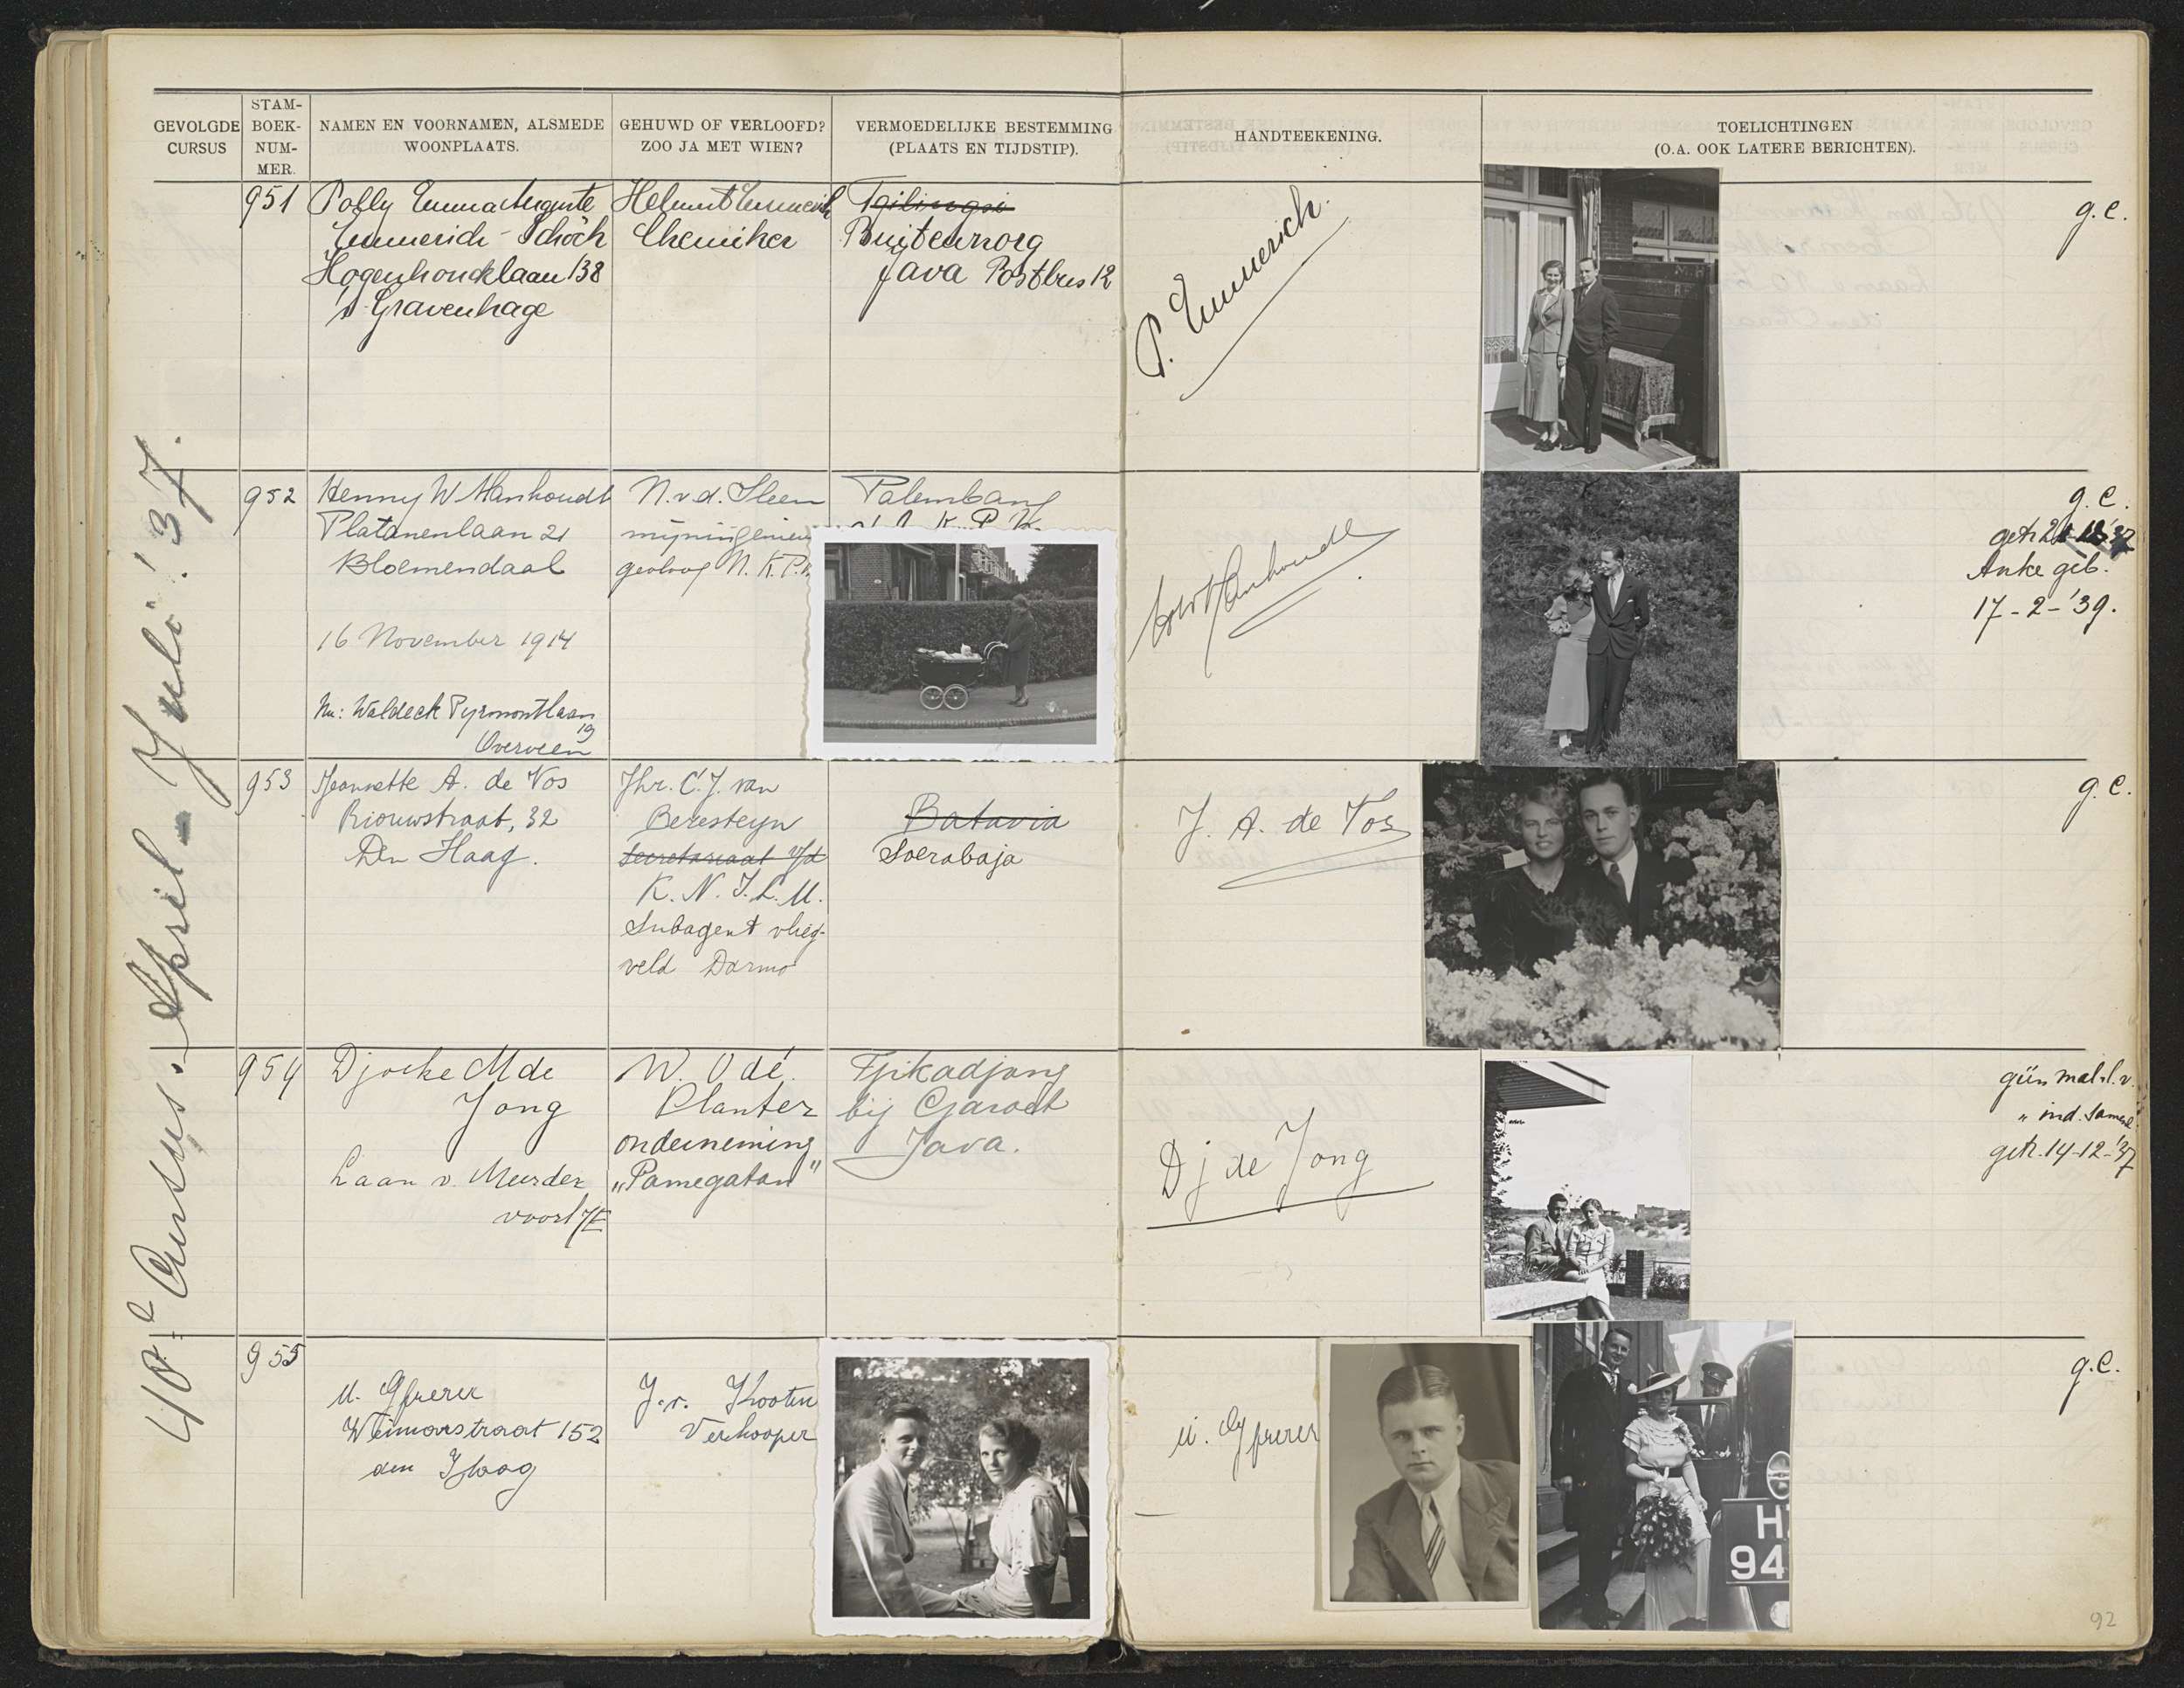 GEVOLGDE CURSUS
STAM-BOEK-NUM-MER.
NAMEN EN VOORNAMEN, ALSMEDE WOONPLAATS.
GEHUWD OF VERLOOFD? ZOO JA MET WIEN?
VERMOEDELIJKE BESTEMMING (PLAATS EN TIJDSTIP).
HANDTEEKENING.
TOELICHTINGEN
(O.A. OOK LATERE BERICHTEN).
40e Cursus. April - Juli '37.
951
Polly Emma Auguste
Emmerich-Schöch
Hogenhoucklaan 138
's Gravenhage
Helmut Emmerich
Chemiker
Buitenzorg
Java Postbus 12
P. Emmerich.
g.c.
952
Henny W Hanhoudt
Platanenlaan 21
Bloemendaal
16 November 1914
Nu: Waldeck Pyrmontlaan
19
Overveen
N.v.d. Sleen
mijningenieur
geoloog N.K.P.M.
Palembang
K.P.M.
g.c.
Anke geb.
17-2-'39.
953
Jeannette A. de Vos
Riouwstraat, 32
Den Haag.
Jhr. C.J. van
Beresteyn
Secretariaat v/d
K.N.I.L.M.
Subagent vlieg-
veld Darmo
Batavia
Soerabaja
J. A. de Vos
g.c.
954
Djoeke M de
Jong
Laan v. Meerder
voort
W. Odé.
Planter
onderneming
"Pamegatan"
Tjikadjang
bij Garoet
Java.
Dj de Jong
ind.
getr. 14-12-'37
955
M. Gfrerer
Weimarstraat 152
den Haag
J.v. Hooten
Verkooper
M. Gfrerer
H
94
g.c.
92